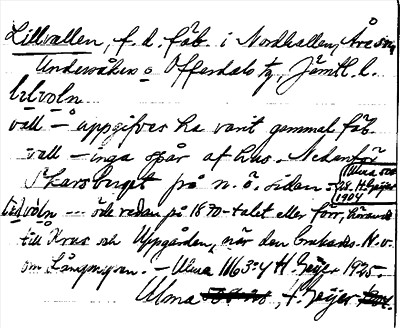 Lillvallen, f. d. fäb. i Nordhallen, Åre sn,
Undersåkers o Offerdals tg, Jämtl. l.
lilvoln
vall – uppgifves ha varit gammal fäb-
vall – inga spår af hus. Nedanför
Skarsberget på n. ö. sidan –
Ulma
28. H. Geijer
1904
lilvoln --- öde redan på 1870-talet eller förr,
till Krus och Uppgården, när den brukades. N. v.
om Långmyren. – Ulma 1163:4 H. Geijer 1925.
Ulma H. Geijer